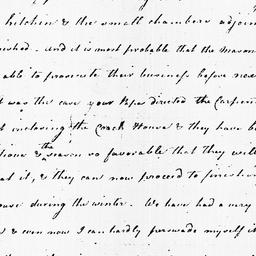 kitchen & the small chambers adjoin
nished. and it is most probable that the mason
able to prosecute their business before nex
t was the case your Papa directed the Carpen
t inclosing the Coach House & they have be
tions & the season so favorable that they will
at it, & they can now proceed to finishin
ouse during the winter. We have had a very
& even now I can hardly perswade myself it